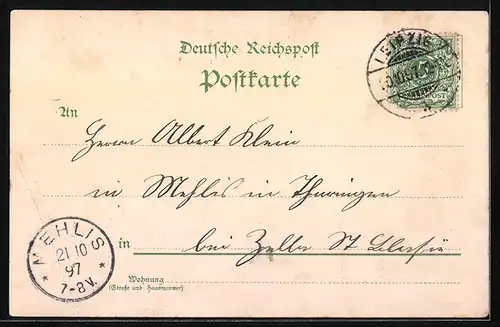 Deutsche Reichspost
Postkarte
LEIPZIG
An
Herrn Albert Klein
in Mehlis in Thüringen
in bei Zella St Blasii
MEHLIS
21 10
97
7-8 V.
Wohnung
(Straße und Hausnummer)